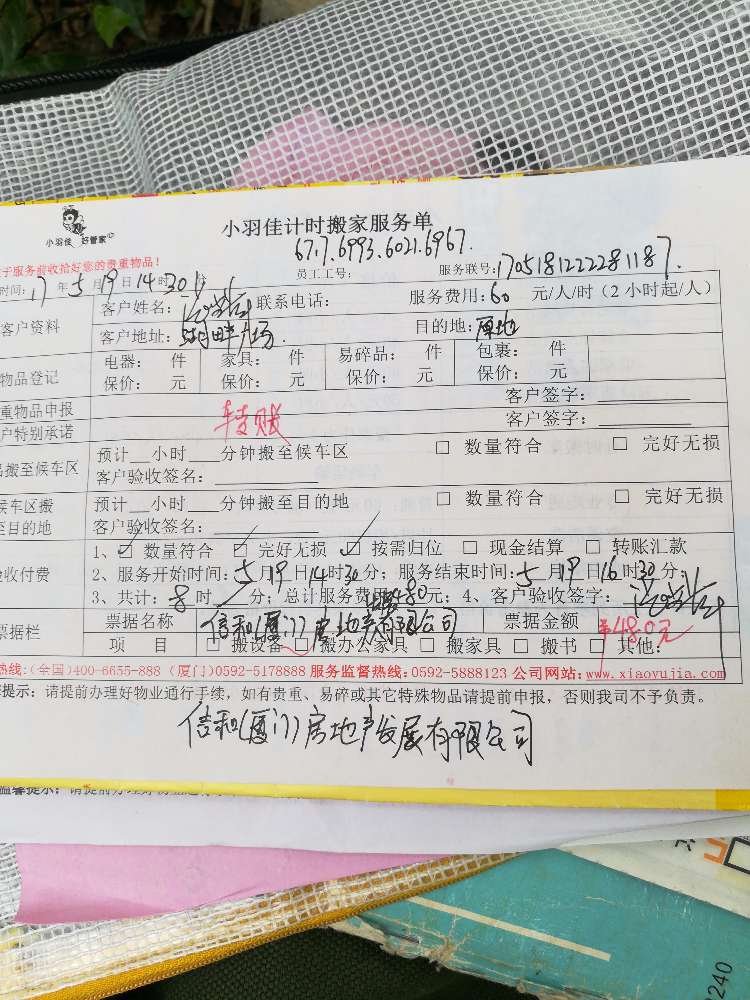 小羽佳 好管家
小羽佳计时搬家服务单
67.7.6993.6021.6967.
子服务前收拾好您的贵重物品！
员工工号：
服务联号：1705181222281187.
时间：17年5月19日14时30分
客户资料
客户姓名：
联系电话：
服务费用：60 元/人/时（2小时起/人）
客户地址：
目的地：原地
物品登记
电器： 件 家具： 件 易碎品： 件 包裹： 件
保价： 元 保价： 元 保价： 元 保价： 元
重物品申报
客户签字：
转账
户特别承诺
客户签字：
品搬至候车区
预计__小时___分钟搬至候车区 □ 数量符合 □ 完好无损
客户验收签名：
候车区搬
至目的地
预计__小时___分钟搬至目的地 □ 数量符合 □ 完好无损
客户验收签名：
验收付费
1、☑ 数量符合 ☑ 完好无损 ☑ 按需归位 □ 现金结算 □ 转账汇款
2、服务开始时间：5月19日14时30分；服务结束时间：5月19日16时30分；
3、共计：8时 分；总计服务费用480元；4、客户验收签字：
票据栏
票据名称 信和(厦门)房地产发展有限公司 票据金额 ¥480元
项 目 □ 搬设备 □ 搬办公家具 □ 搬家具 □ 搬书 □ 其他：
热线：(全国)400-6655-888 (厦门)0592-5178888 服务监督热线：0592-5888123 公司网站：www.xiaoyujia.com
提示：请提前办理好物业通行手续，如有贵重、易碎或其它特殊物品请提前申报，否则我司不予负责。
信和(厦门)房地产发展有限公司
温馨提示：
240